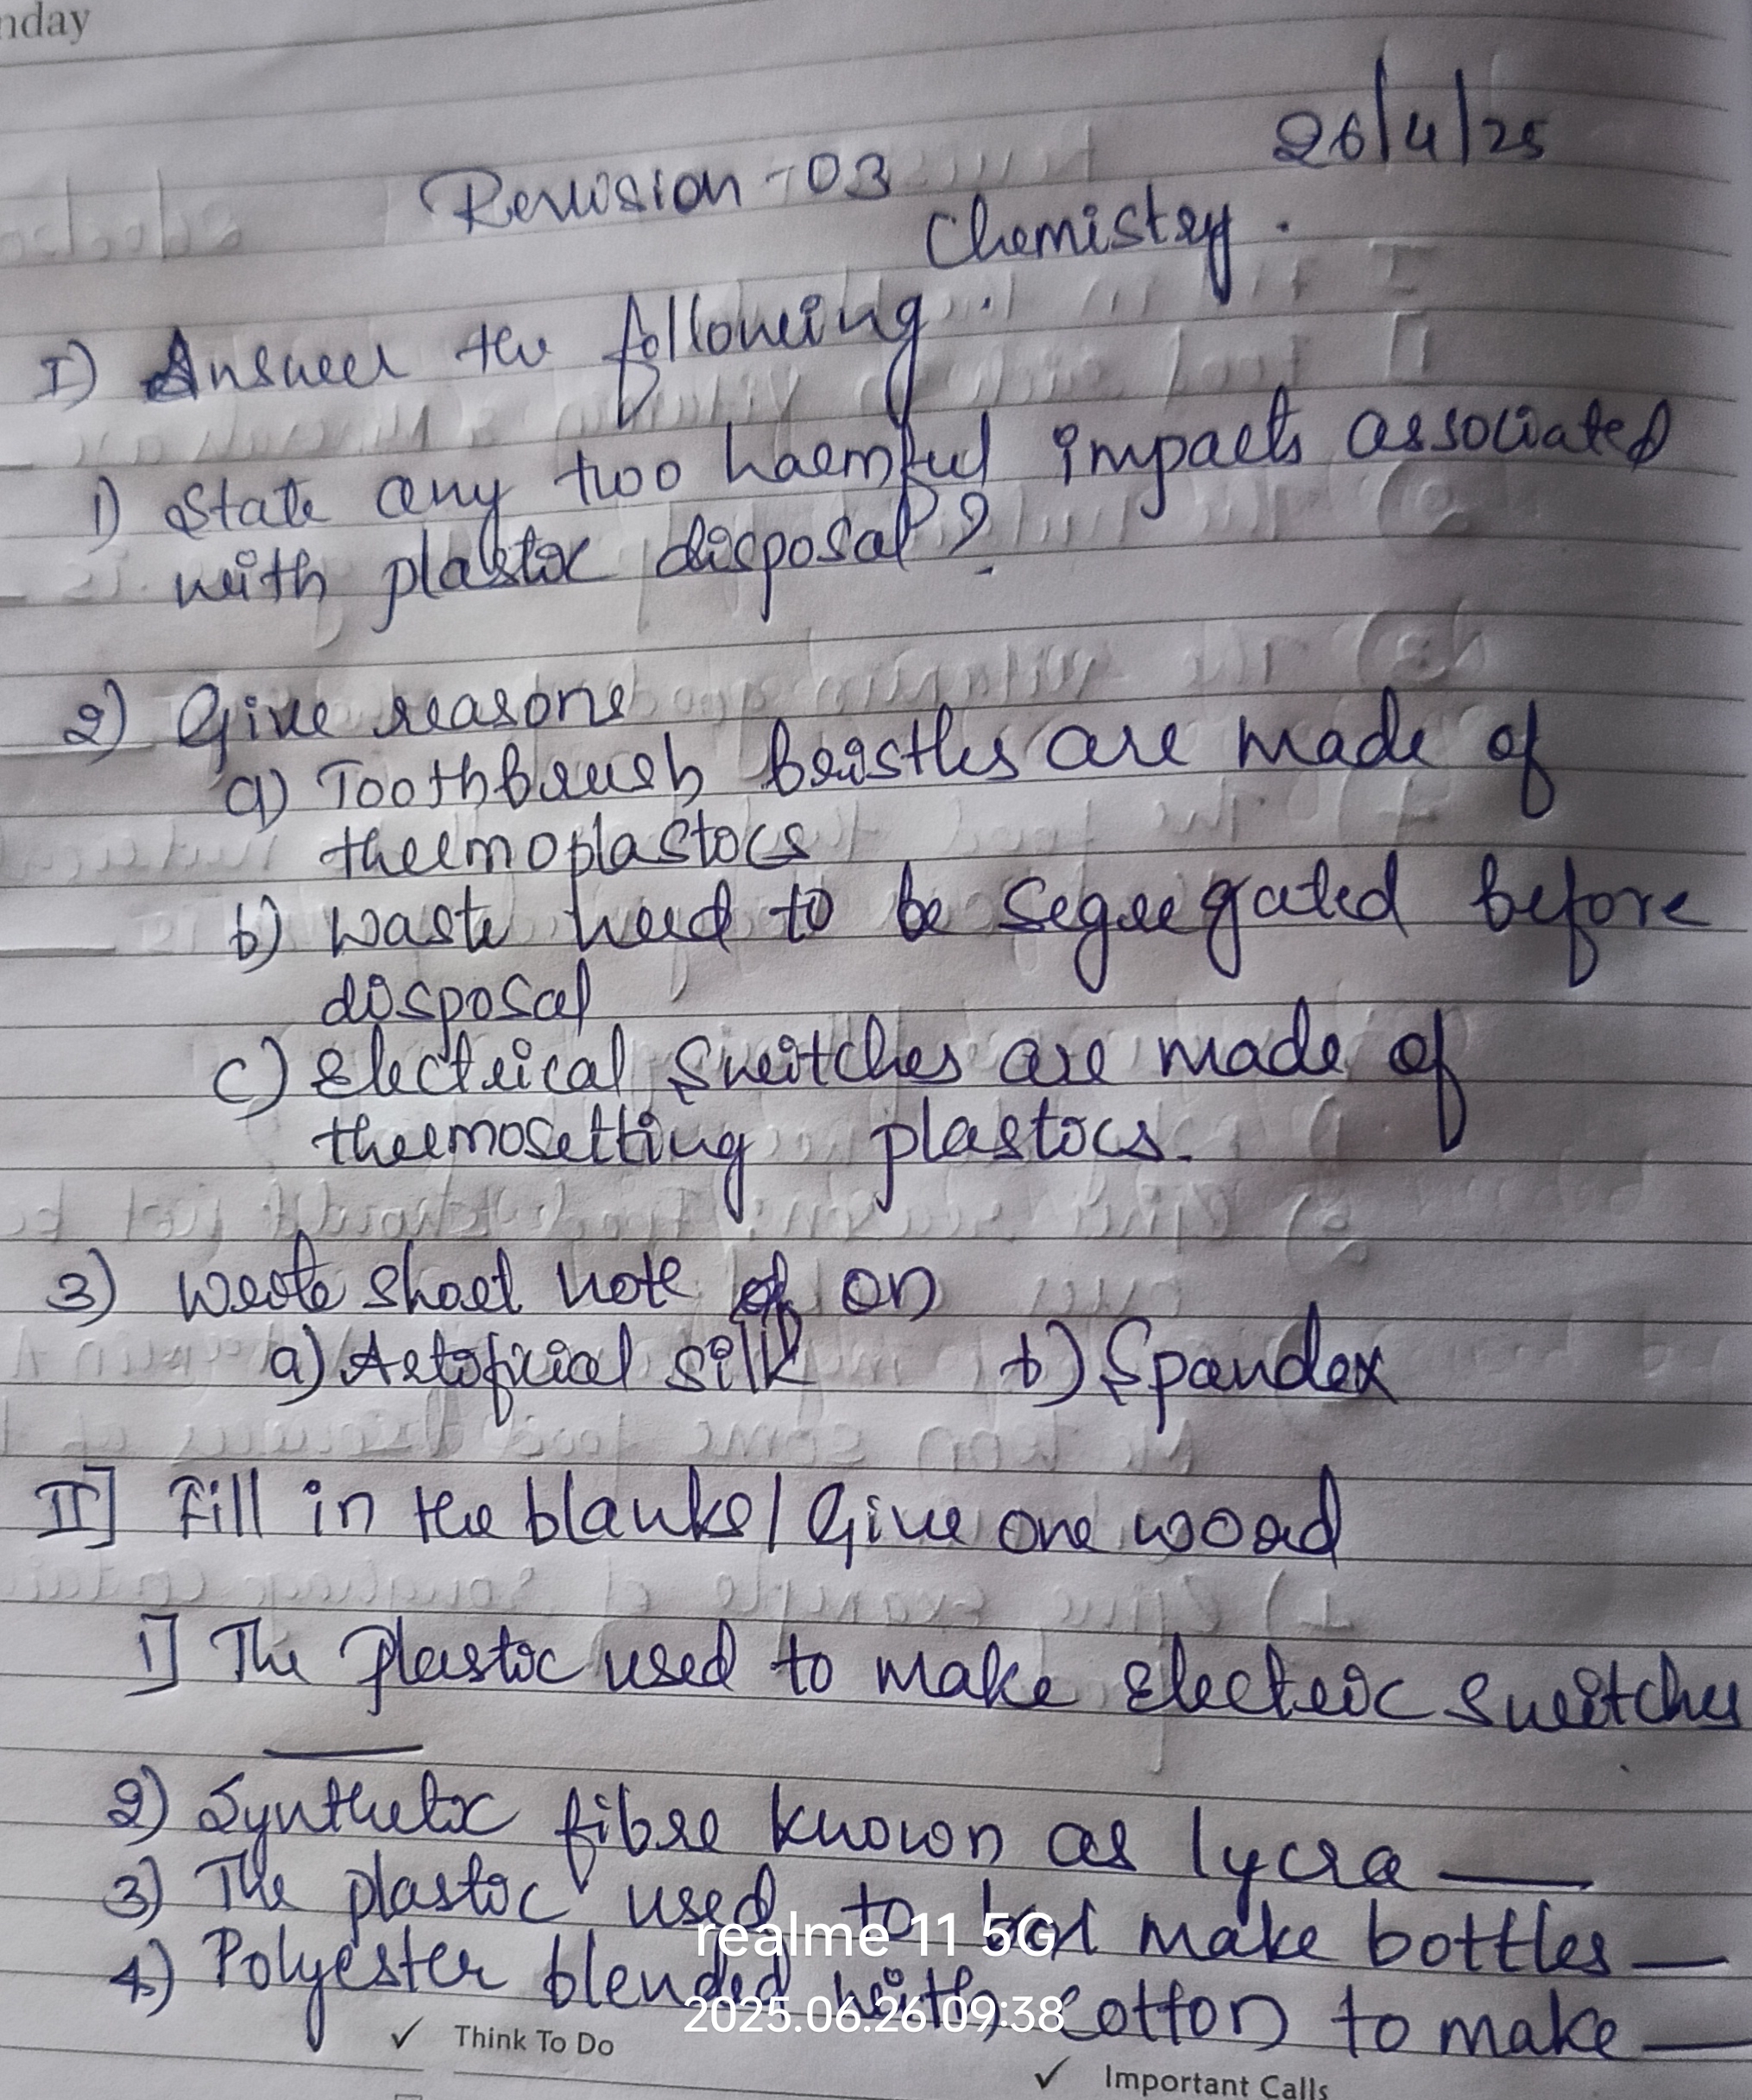 nday
26/4/25
Revision - 03
Chemistry.
I) Answer the following.
1) State any two harmful impacts associated
with plastic disposal?
2) Give reasons
a) Toothbrush bristles are made of
thermoplastics
b) Waste need to be segregated before
disposal
c) Electrical Switches are made of
thermosetting plastics.
3) Write short note of on
a) Artificial silk b) Spandex
II] Fill in the blanks/Give one word
1] The Plastic used to make Electric Switches
____
2) Synthetic fibre known as lycra ____
3) The plastic used to make bottles __
4) Polyester blended with cotton to make __
realme 11 5G
2025.06.26 09:38
✓ Think To Do
✓ Important Calls